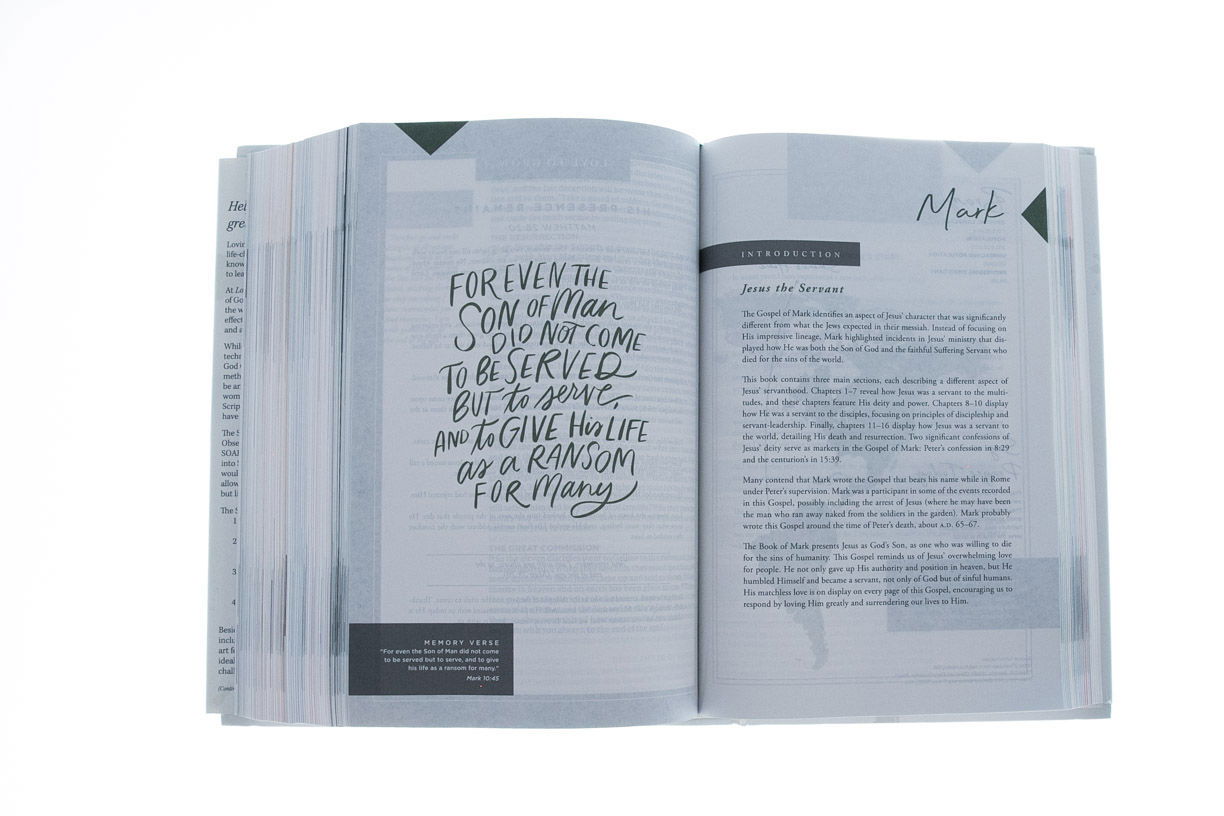 Hel
gre
Lovin
life-c
know
to lea
At Lo
of Go
the w
effect
and a
Whil
techr
God
meth
be ar
wom
Scrip
have
The S
Obse
SOAI
into
woul
allow
but li
The S
1
2
3
4
Besid
inclu
art fo
ideal
chall
FOR EVEN THE
SON OF Man
DID NOT COME
TO BE SERVED
BUT to serve,
AND to GIVE His LIFE
as a RANSOM
FOR Many
MEMORY VERSE
"For even the Son of Man did not come
to be served but to serve, and to give
his life as a ransom for many."
Mark 10:45
Mark
INTRODUCTION
Jesus the Servant
The Gospel of Mark identifies an aspect of Jesus' character that was significantly
different from what the Jews expected in their messiah. Instead of focusing on
His impressive lineage, Mark highlighted incidents in Jesus' ministry that dis-
played how He was both the Son of God and the faithful Suffering Servant who
died for the sins of the world.
This book contains three main sections, each describing a different aspect of
Jesus' servanthood. Chapters 1–7 reveal how Jesus was a servant to the multi-
tudes, and these chapters feature His deity and power. Chapters 8–10 display
how He was a servant to the disciples, focusing on principles of discipleship and
servant-leadership. Finally, chapters 11–16 display how Jesus was a servant to
the world, detailing His death and resurrection. Two significant confessions of
Jesus' deity serve as markers in the Gospel of Mark: Peter's confession in 8:29
and the centurion's in 15:39.
Many contend that Mark wrote the Gospel that bears his name while in Rome
under Peter's supervision. Mark was a participant in some of the events recorded
in this Gospel, possibly including the arrest of Jesus (where he may have been
the man who ran away naked from the soldiers in the garden). Mark probably
wrote this Gospel around the time of Peter's death, about A.D. 65–67.
The Book of Mark presents Jesus as God's Son, as one who was willing to die
for the sins of humanity. This Gospel reminds us of Jesus' overwhelming love
for people. He not only gave up His authority and position in heaven, but He
humbled Himself and became a servant, not only of God but of sinful humans.
His matchless love is on display on every page of this Gospel, encouraging us to
respond by loving Him greatly and surrendering our lives to Him.